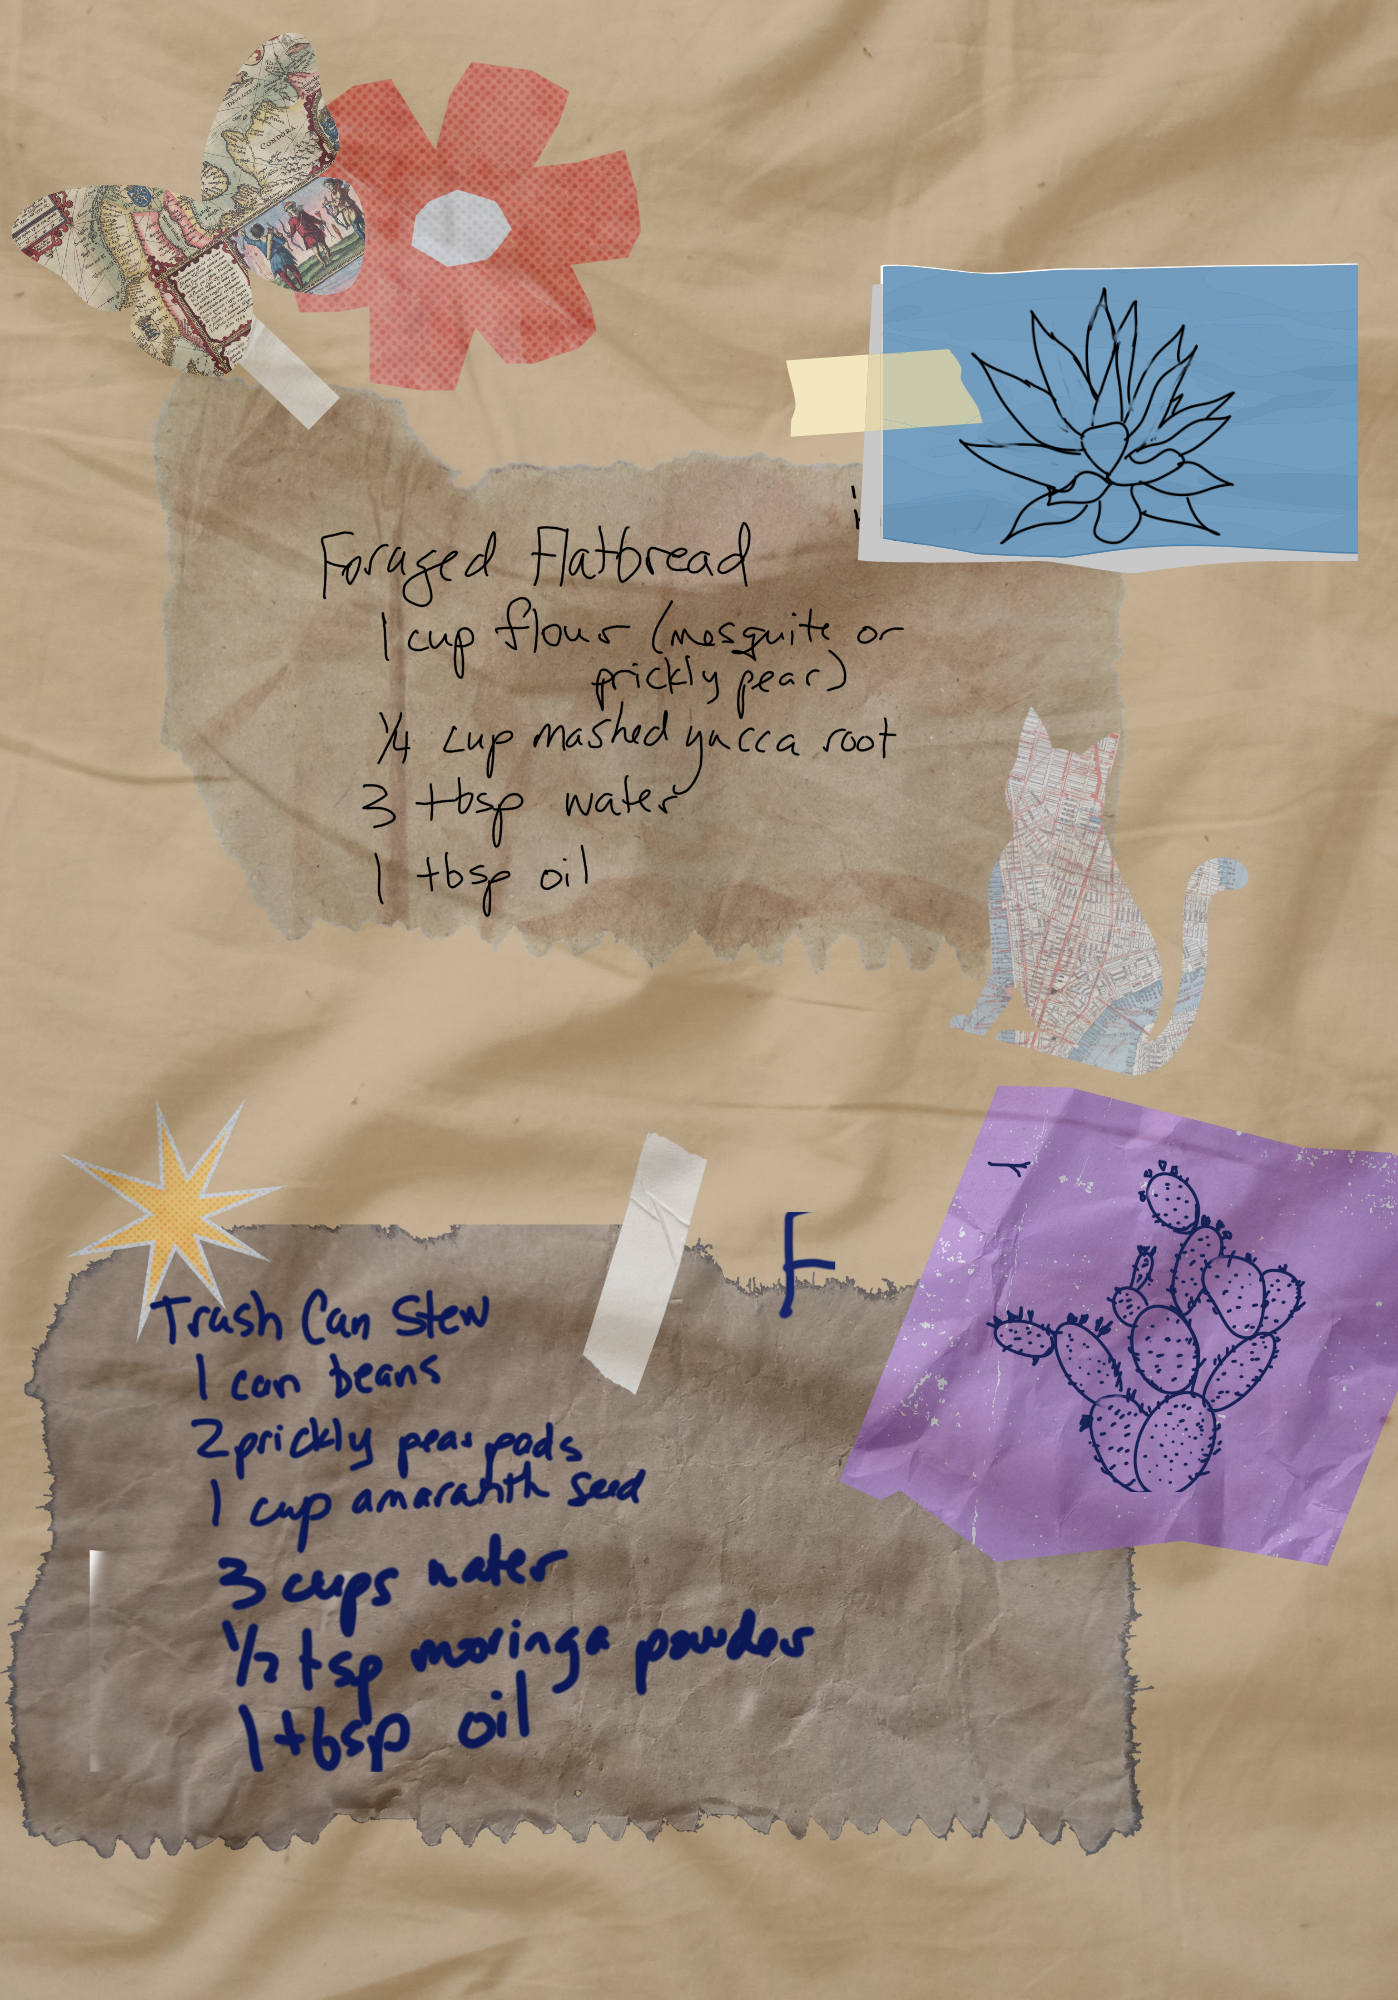 Foraged Flatbread
1 cup flour (mesquite or
prickly pear)
1/4 cup mashed yucca root
3 tbsp water
1 tbsp oil
F
Trash Can Stew
1 can beans
2 prickly pear pads
1 cup amaranth seed
3 cups water
1/2 tsp moringa powder
1 tbsp oil